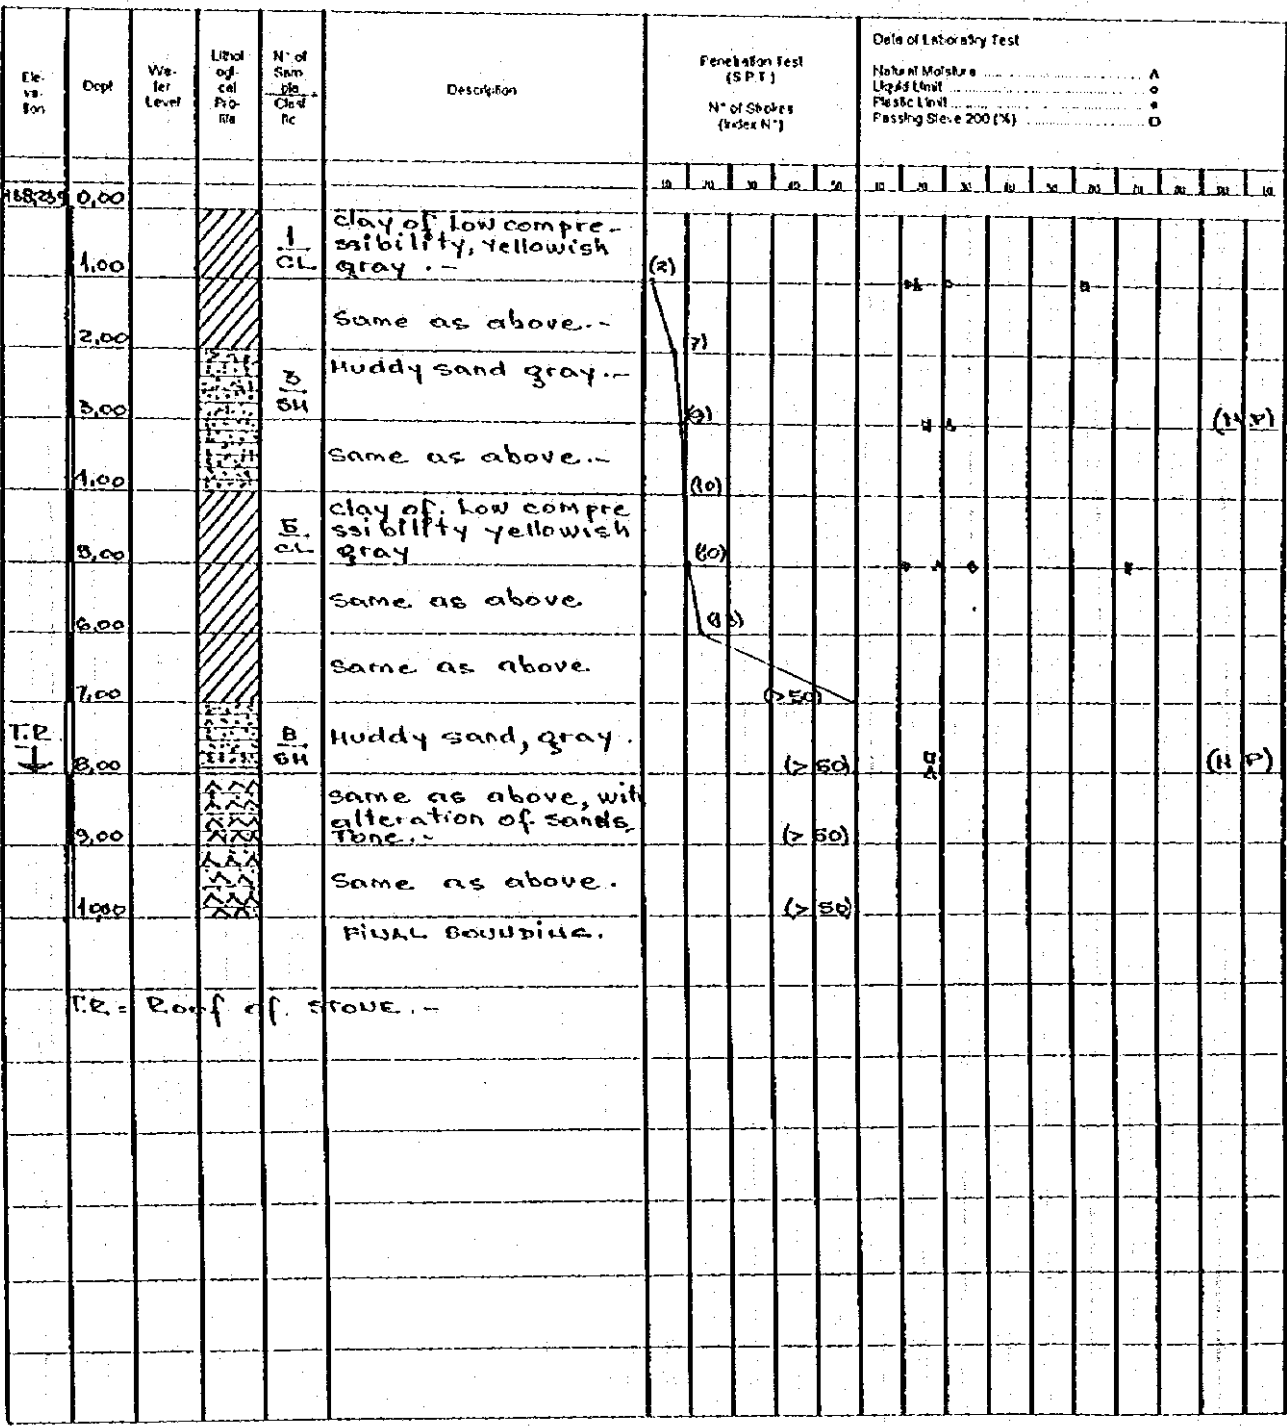 Ele-
va-
tion
Dept
Wa-
ter
Level
Lithol
ogi-
cal
Pro-
file
N° of
Sam
ple
Clasi
fic
Description
Penetration Test
(S.P.T.)
N° of Strokes
(Index N°)
Date of Laboratory Test
Natural Moisture ........ Λ
Liquid Limit ........ o
Plastic Limit ........ •
Passing Sieve 200 (%) ........ □
10 20 30 40 50 10 20 30 40 50 60 70 80 90 10
168,239 0,00
1
CL
clay of low compre-
ssibility, yellowish
gray .-
1,00 (2)
Same as above.-
2,00 7)
3
SM
Muddy sand gray.-
3,00 (9) (N P)
Same as above.-
4,00 (10)
5
CL
clay of low compre
ssibility yellowish
gray
5,00 (10)
Same as above
6,00 (13)
Same as above.
7,00 (>50)
T.R.
8
SM
Muddy sand, gray.
8,00 (>50) (N P)
Same as above, with
alteration of sands,
Tone.-
9,00 (>50)
Same as above.
10,00 (>50)
FINAL SOUNDING.
T.R = Roof of STONE.-